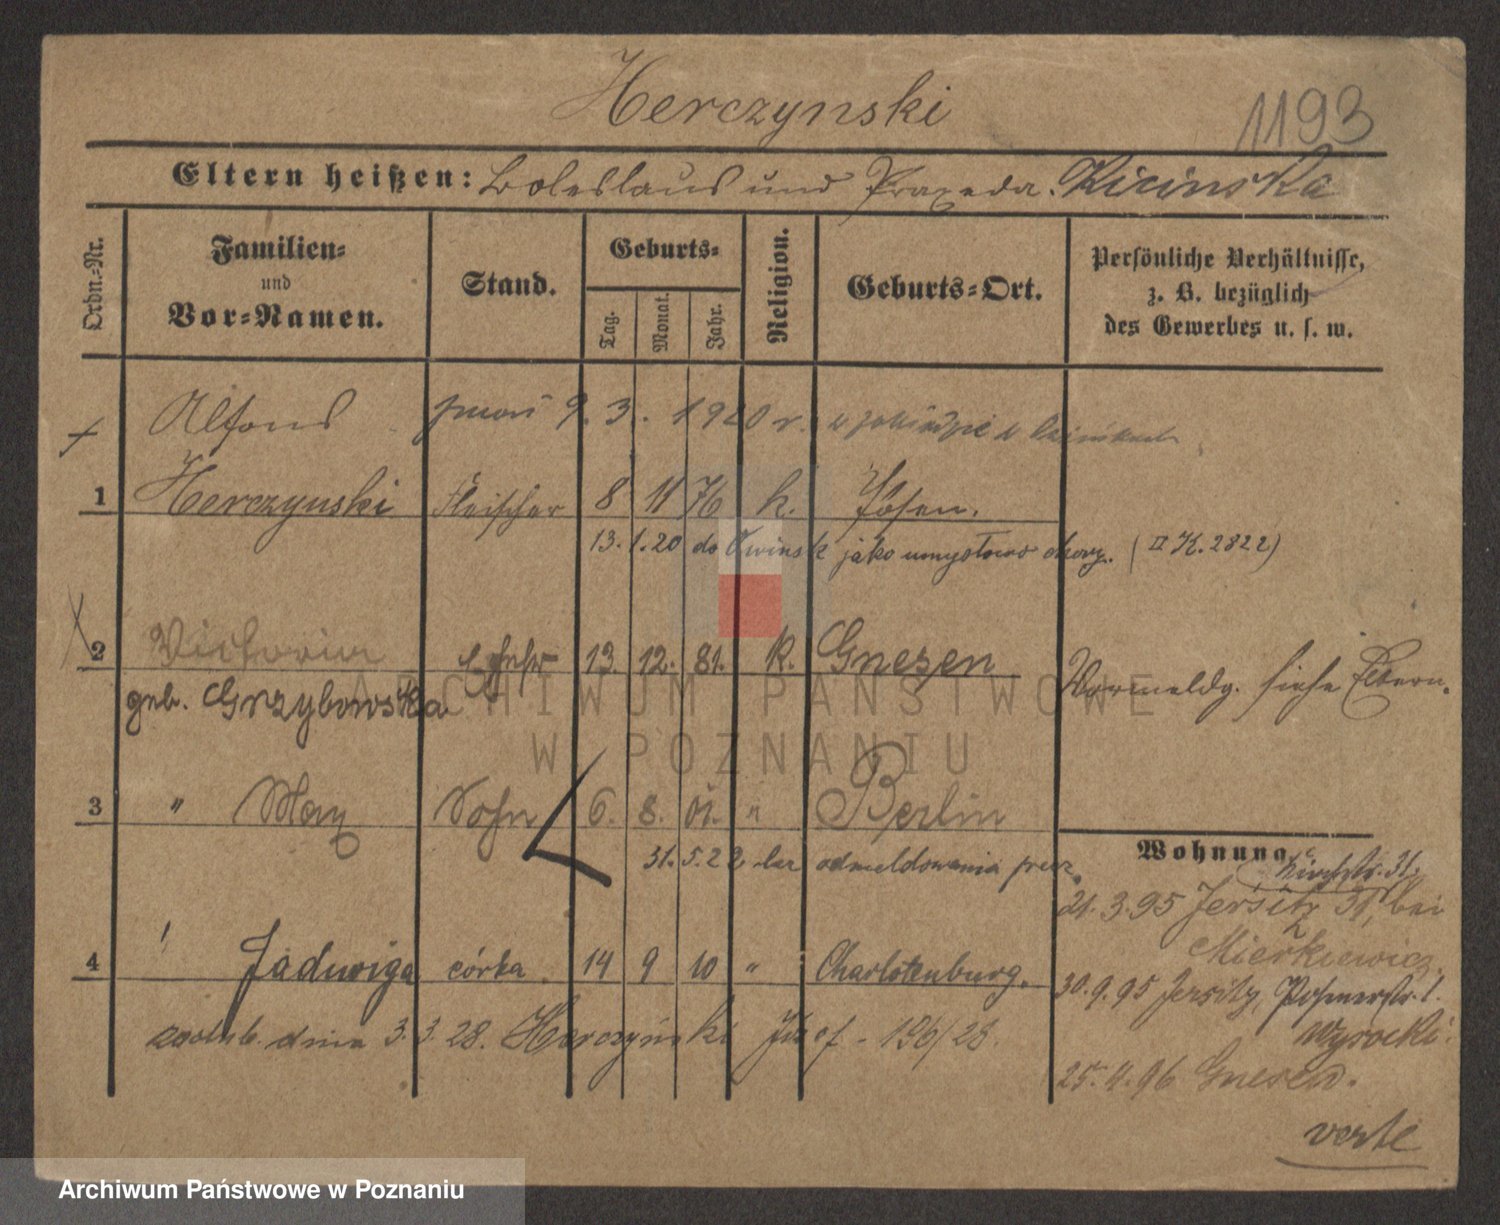 Herczynski
1193
Eltern heißen: Boleslaus und Praxeda. Kicinska
Ordn.-Nr.
Familien-
und
Vor-Namen.
Stand.
Geburts-
Tag.
Monat.
Jahr.
Religion.
Geburts-Ort.
Persönliche Verhältnisse,
z. B. bezüglich
des Gewerbes u. s. w.
Alfons zmarł 9. 3. 1920 r. w zakładzie w
1 Herczynski Fleischer 8 11 76 k. Posen.
13. 1. 20 do Owinsk jako umysłowo chory. (II K. 2822)
2 Victoria Ehefr 13. 12. 81. k. Gnesen
geb. Grzybowska
Vormeldg. siehe Eltern.
3 " Max Sohn 6. 8. 01. " Berlin
31. 5. 22 odmeldowania
Wohnung
Kirchstr. 31.
21. 3. 95 Jersitz 31, bei
Mierkiewicz.
4 Jadwiga córka 14 9 10 " Charlotenburg.
30. 9. 95 Jersitz, Posenerstr. 1.
Wysocki.
zaślub. dnia 3. 3. 28. Herczyński Józef - 196/28.
25. 4. 96 Gnesen.
verte
ARCHIWUM PAŃSTWOWE
W POZNANIU
Archiwum Państwowe w Poznaniu